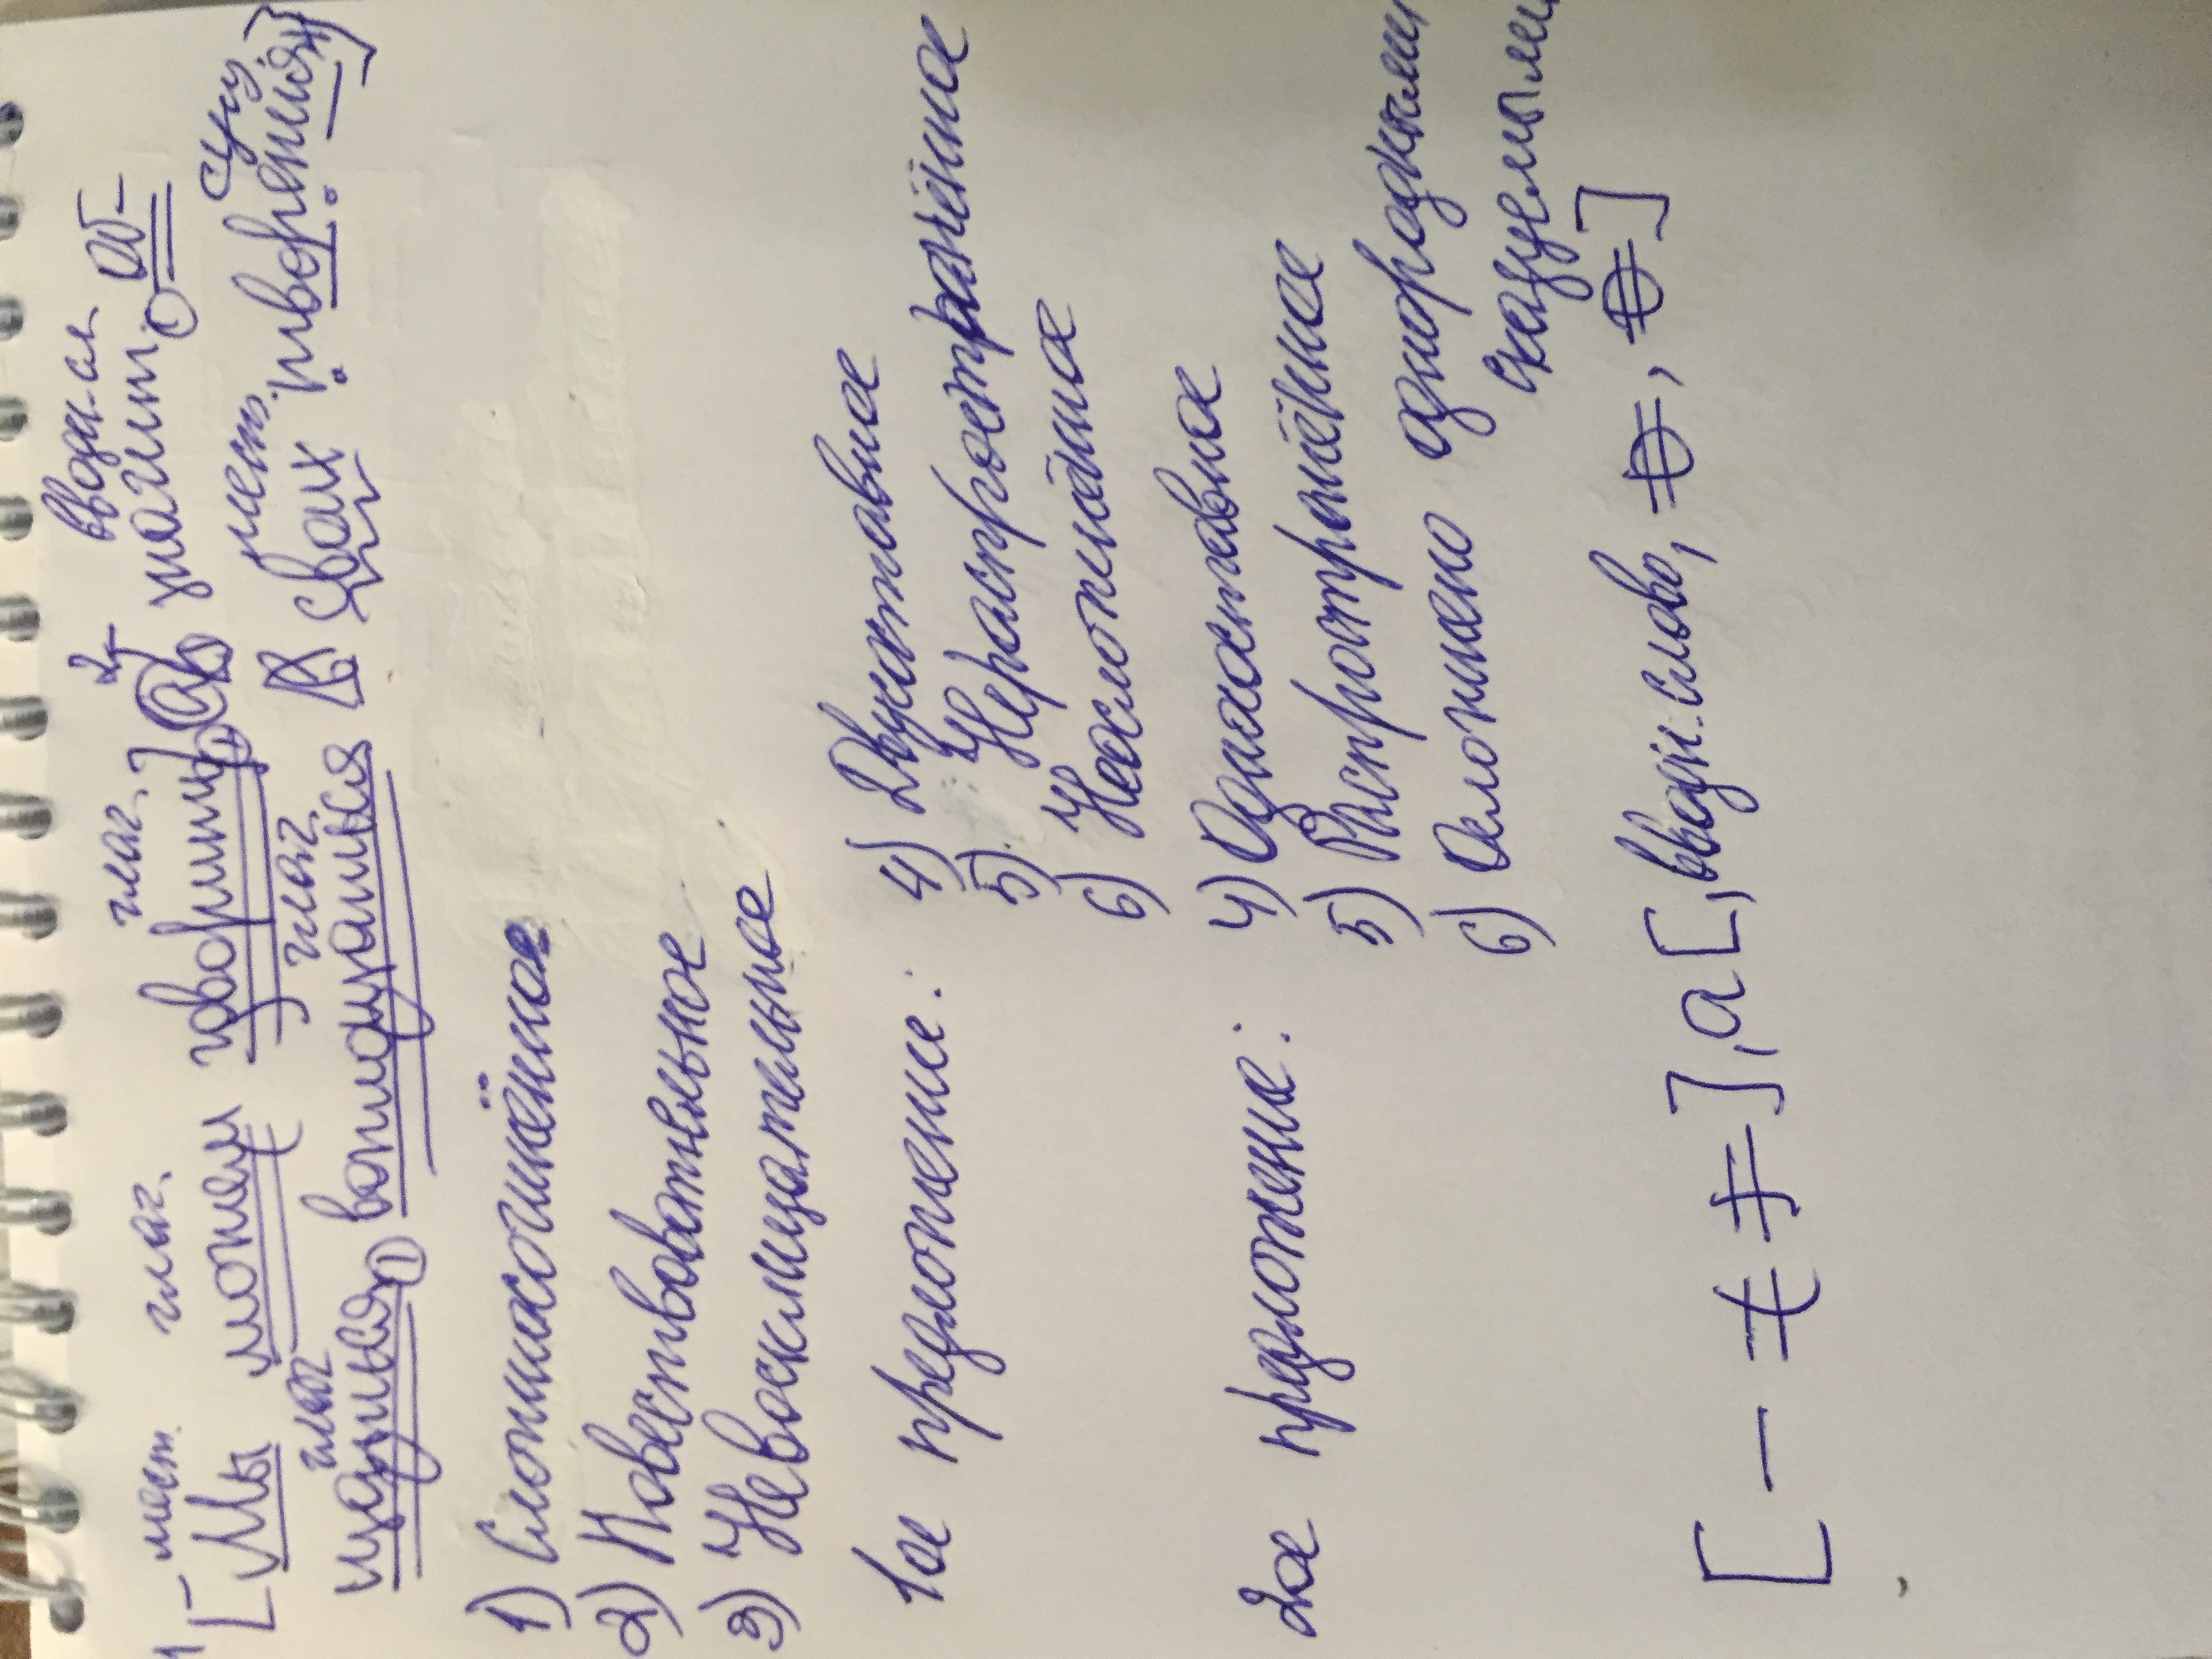 1 мест. глаг. глаг. 2 вводн. сл.
[Мы можем творить], (а), [значит, об-
глаг. глаг. мест. сущ.
щаться, воплощаться в своих творениях]
1) Сложносочинённое
2) Повествовательное
3) Невосклицательное
1ое предложение: 4) Двусоставное
5) Нераспространённое
6) Неосложнённое
2ое предложение: 4) Односоставное
5) Распространённое
6) Осложнено однородными
сказуемыми
[— = =], а [, вводн. слово, =, =]